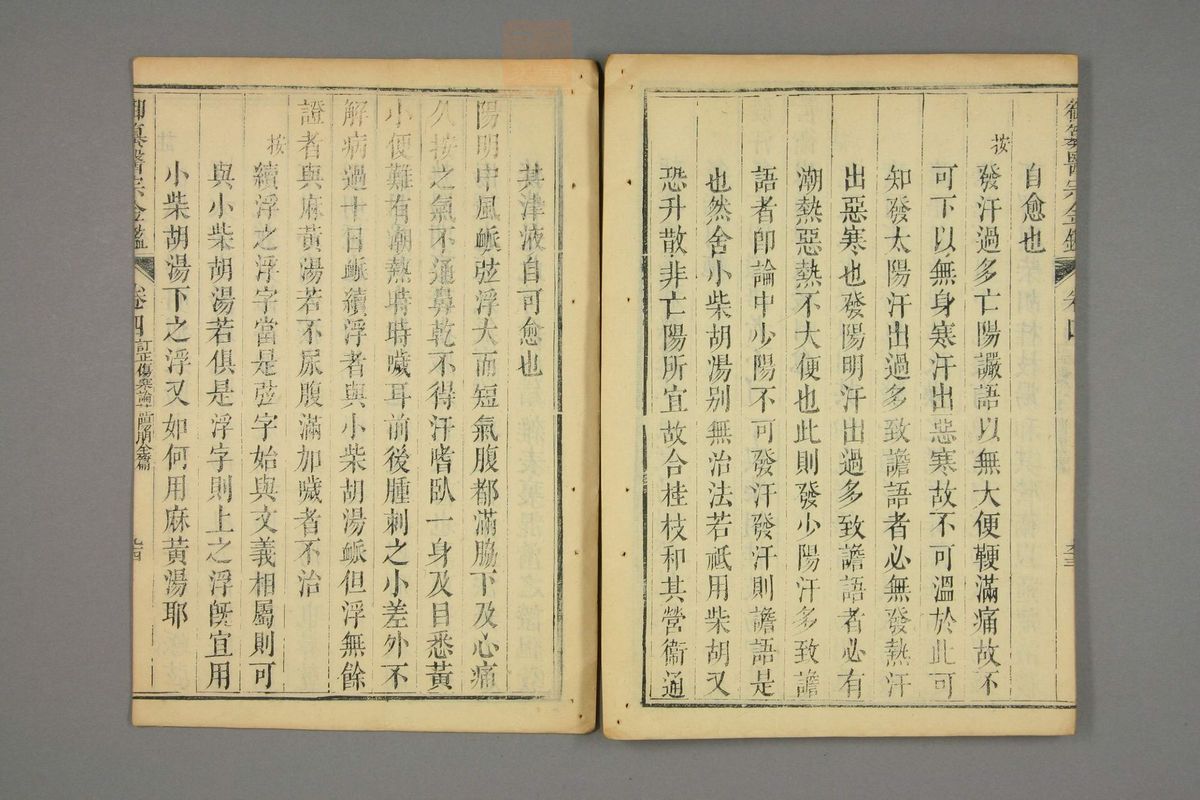 自愈也
按發汗過多亡陽讝語以無大便鞕滿痛故不
可下以無身寒汗出惡寒故不可溫於此可
知發太陽汗出過多致譫語者必無發熱汗
出惡寒也發陽明汗出過多致譫語者必有
潮熱惡熱不大便也此則發少陽汗多致譫
語者卽論中少陽不可發汗發汗則譫語是
也然舍小柴胡湯別無治法若祇用柴胡又
恐升散非亡陽所宜故合桂枝和其營衞通
其津液自可愈也
陽明中風脈弦浮大而短氣腹都滿脇下及心痛
久按之氣不通鼻乾不得汗嗜臥一身及目悉黃
小便難有潮熱時時噦耳前後腫刺之小差外不
解病過十日脈續浮者與小柴胡湯脈但浮無餘
證者與麻黃湯若不尿腹滿加噦者不治
按續浮之浮字當是弦字始與文義相屬則可
與小柴胡湯若俱是浮字則上之浮旣宜用
小柴胡湯下之浮又如何用麻黃湯耶
御纂醫宗金鑑 卷四 訂正傷寒論註陽明全篇